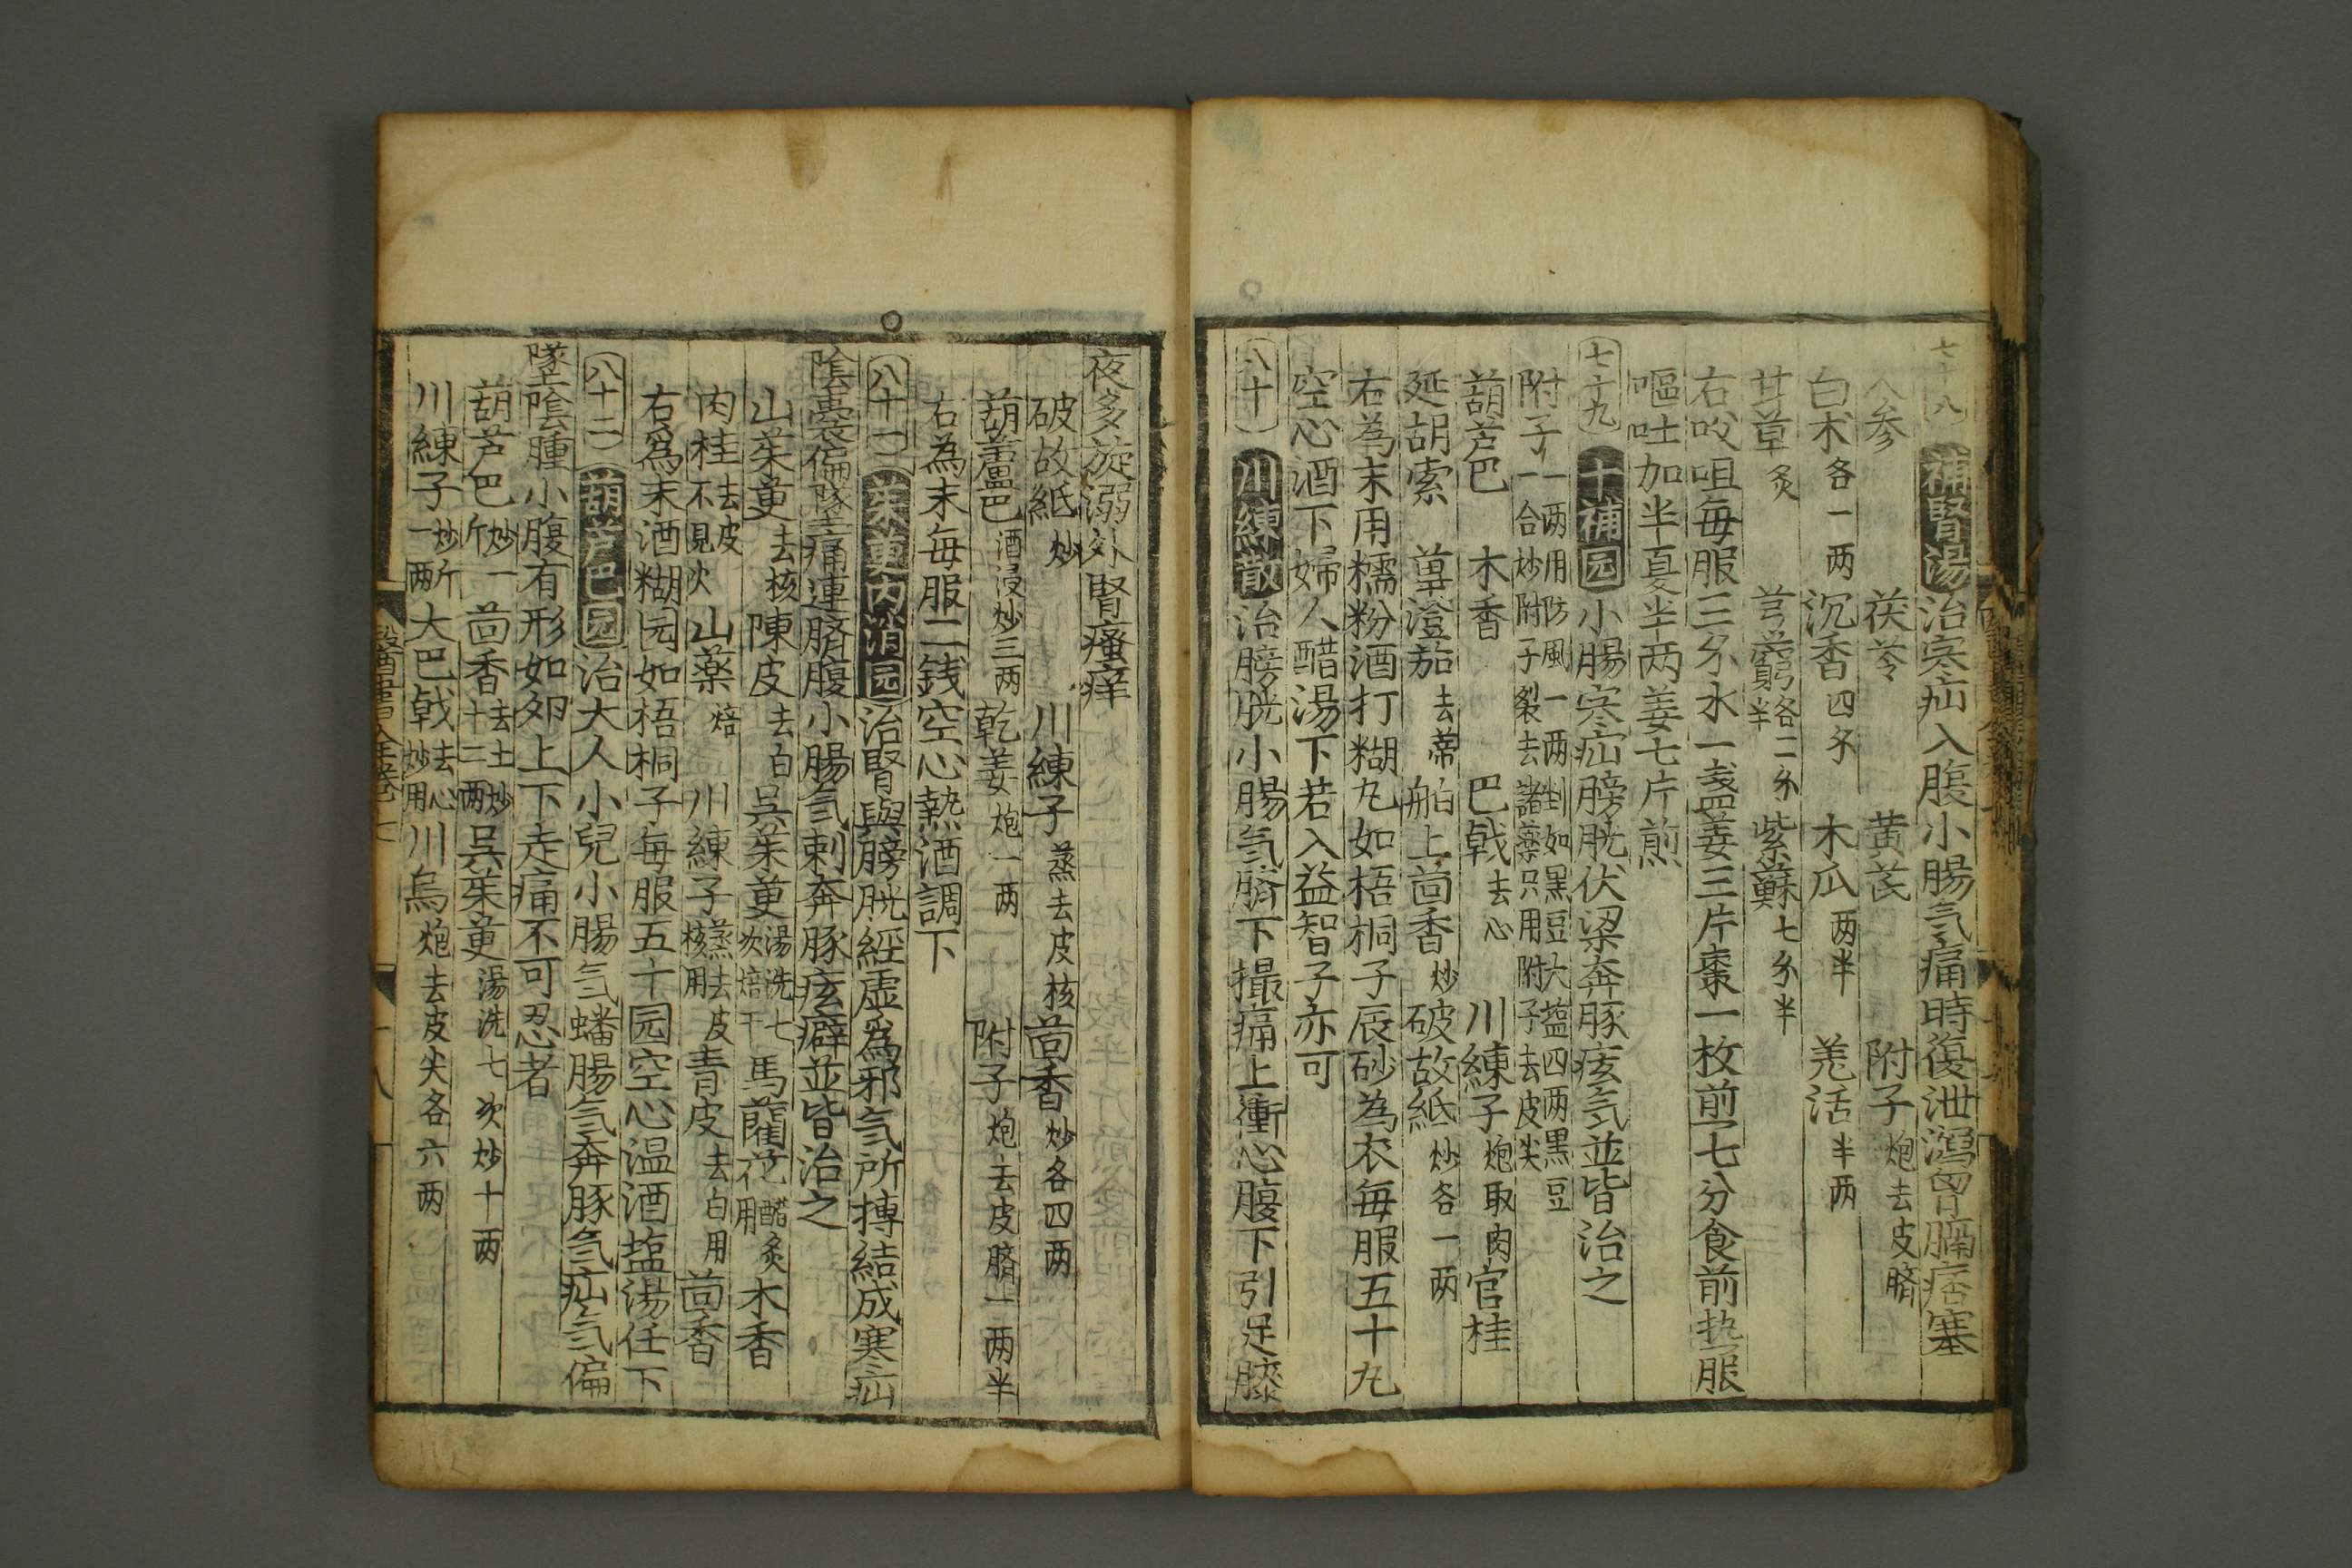 七十八 補腎湯 治寒疝入腹小腸气痛時復泄瀉胷膈痞塞
人参 茯苓 黄芪 附子炮去皮臍
白术各一两 沉香四分 木瓜两半 羌活半两
甘草炙 芎藭各二分半 紫蘇七分半
右㕮咀每服三分水一盞姜三片棗一枚煎七分食前热服
嘔吐加半夏半两姜七片煎
七十九 十補园 小腸寒疝膀胱伏梁奔豚痃气並皆治之
附子一两用防風一两剉如黒豆大塩四两黒豆
一合炒附子裂去諸藥只用附子去皮尖
葫芦巴 木香 巴戟去心 川練子炮取肉 官桂
延胡索 蓽澄茄去蒂 舶上茴香炒 破故紙炒各一两
右為末用糯粉酒打糊丸如梧桐子辰砂為衣每服五十丸
空心酒下婦人醋湯下若入益智子亦可
八十 川練散 治膀胱小腸气臍下撮痛上衝心腹下引足膝
夜多旋溺外腎瘙痒
破故紙炒 川練子蒸去皮核 茴香炒各四两
葫蘆巴酒浸炒三两 乾姜炮一两 附子炮去皮臍一两半
右為末每服二銭空心熱酒調下
八十一 茱萸内消园 治腎與膀胱經虚為邪气所搏結成寒疝
陰嚢偏墜痛連臍腹小腸气刺奔豚痃癖並皆治之
山茱萸去核 陳皮去白 呉茱萸湯洗七次焙干 馬藺花醋炙用 木香
肉桂去皮不見火 山薬焙 川練子蒸去皮核用 青皮去白用 茴香
右為末酒糊园如梧桐子每服五十园空心温酒塩湯任下
八十二 葫芦巴园 治大人小兒小腸气蟠腸气奔豚气疝气偏
墜陰腫小腹有形如夘上下走痛不可忍者
葫芦巴炒一斤 茴香去土炒十二两 呉茱萸湯洗七次炒十两
川練子炒一斤两 大巴戟去心炒用 川烏炮去皮尖各六两